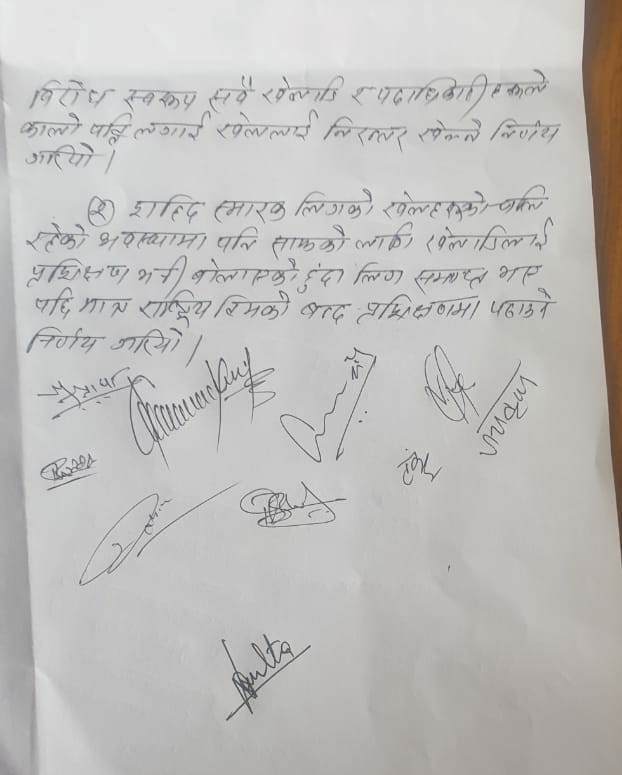 विरोध स्वरूप सबै खेलाडि र पदाधिकारीहरूले
कालो पट्टि लगाई खेललाई निरन्तर खेल्ने निर्णय
गरियो।
(२) शहिद स्मारक लिगको खेलहरूको चलि
रहेको अवस्थामा पनि साफको लागि खेलाडिलाई
प्रशिक्षण भनी बोलाएको हुंदा लिग समाप्त भए
पछि मात्र राष्ट्रिय टिमको बन्द प्रशिक्षणमा पठाउने
निर्णय गरियो।